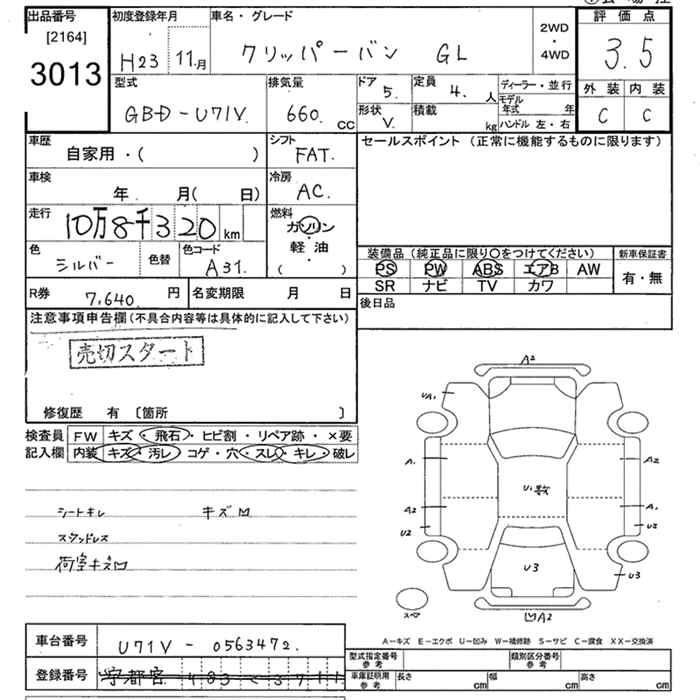 出品番号 初度登録年月 車名・グレード 2WD 評価点
[2164] ・
3013 H23 11.月 クリッパーバン GL 4WD 3.5
型式 排気量 ドア 定員 ディーラー・並行 外装 内装
GBD-U71V. 660. CC 5. 4. 人 モデル年式 年 C C
形状 積載 ハンドル 左・右
V. kg
車歴 シフト セールスポイント (正常に機能するものに限ります)
自家用・( ) FAT.
車検 冷房
年 月( 日) AC.
走行 燃料
10万8千320 km ガソリン
・
軽油
( )
色 色替 色コード
シルバー A31.
装備品 (純正品に限り〇をつけてください) 新車保証書
PS PW ABS エアB AW 有・無
SR ナビ TV カワ
R券 7,640. 円 名変期限 月 日
後日品
注意事項申告欄(不具合内容等は具体的に記入して下さい)
売切スタート
修復歴 有 〔箇所 〕
検査員 FW キズ・飛石・ヒビ割・リペア跡・×要
記入欄 内装 キズ・汚レ・コゲ・穴・スレ・キレ・破レ
シートキレ キズ凹
スタッドレス
荷室キズ凹
A2
UA1
A1 A2
U1数
A2 A1
U2 U2
U3 U3
スペア
凹A2
A-キズ E-エクボ U-凹み W-補修跡 S-サビ C-腐食 XX-交換済
車台番号 U71V - 0563472.
型式指定番号 参考 類別区分番号 参考
登録番号
車庫証明用 参考 長さ cm 幅 cm 高さ cm